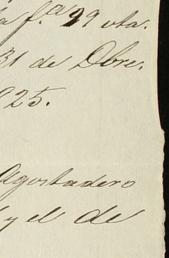 a f.a 29 vta.
31 de Dbre.
925.
Agostadero
y el de